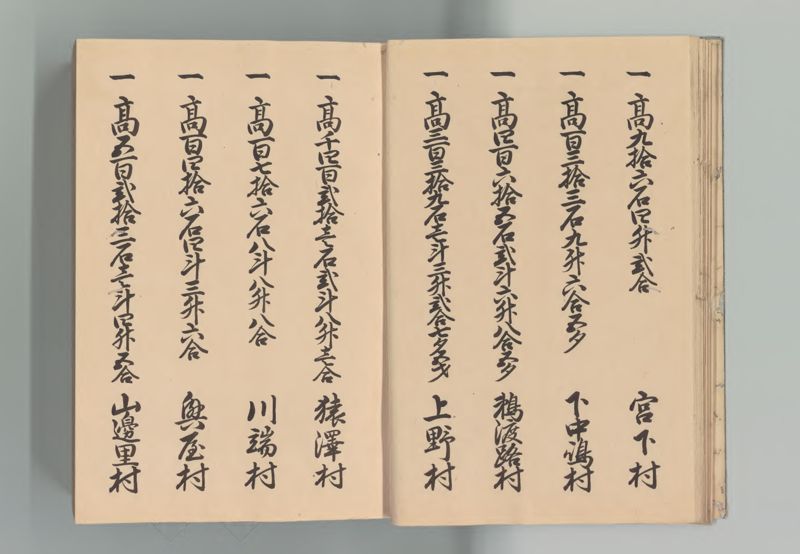 一高九拾六石四升弐合 宮下村
一高百三拾三石九升六合五夕 下中嶋村
一高四百六拾五石弐斗六升八合五夕 鵜渡路村
一高三百三拾九石壱斗三升弐合七夕五才 上野村
一高千四百弐拾壱石弐斗八升壱合 猿澤村
一高百七拾六石八斗八升八合 川端村
一高百四拾六石四斗三升六合 奥屋村
一高五百弐拾三石壱斗四升五合 山邊里村